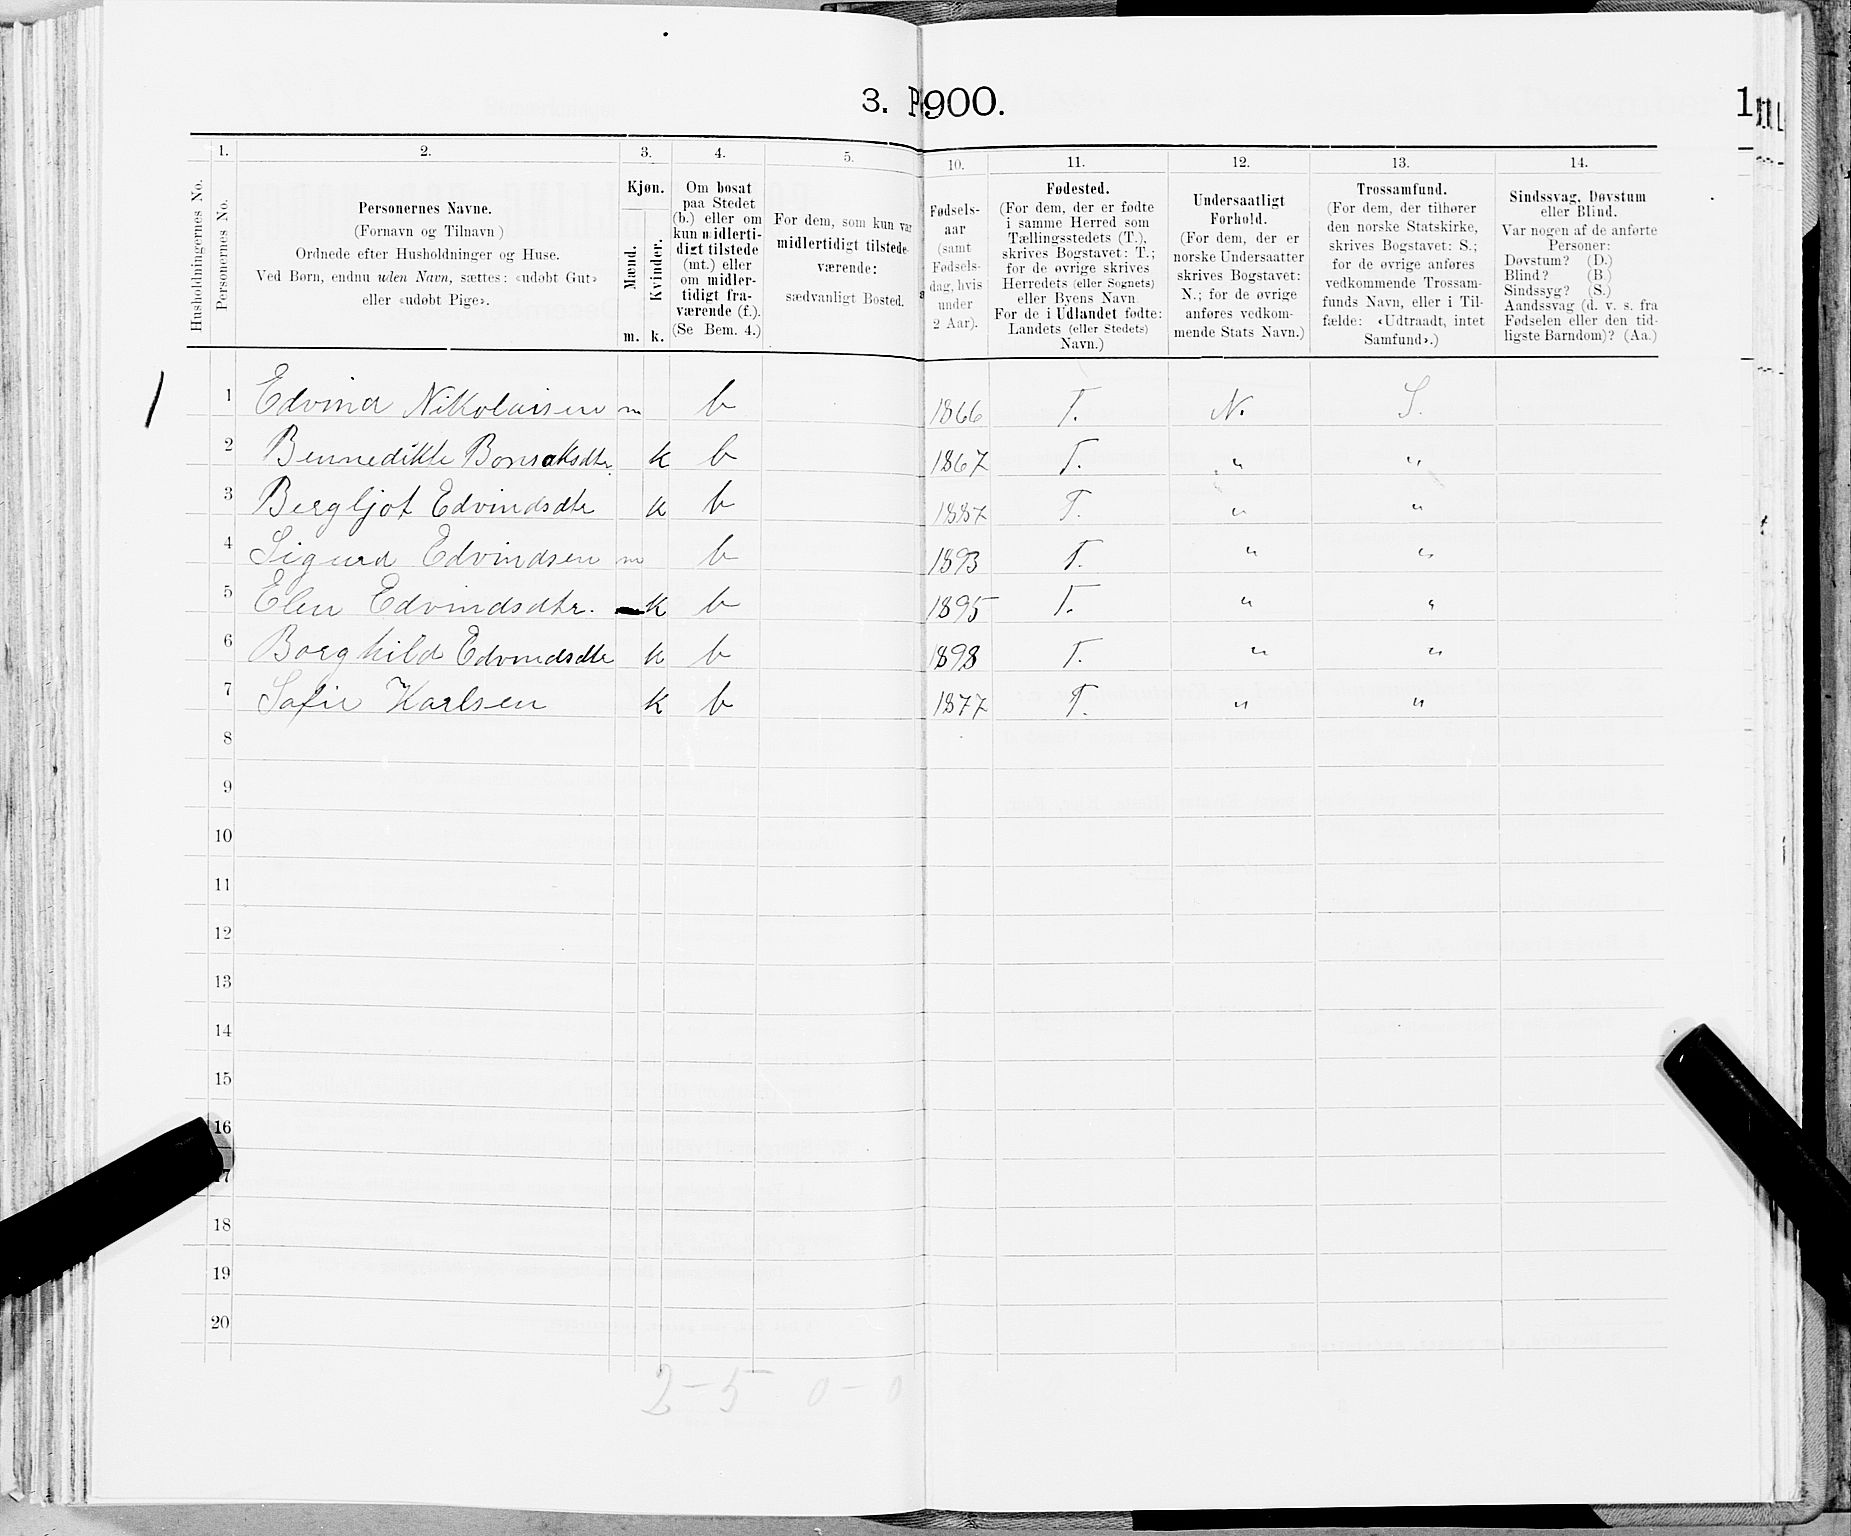 3. P
900.
1
1.
2.
3.
4.
5.
10.
11.
12.
13.
14.
Husholdningernes No.
Personernes No.
Personernes Navne.
(Fornavn og Tilnavn)
Ordnede efter Husholdninger og Huse.
Ved Børn, endnu uden Navn, sættes: «udøbt Gut»
eller «udøbt Pige».
Kjøn.
Mænd.
Kvinder.
m. k.
Om bosat
paa Stedet
(b.) eller om
kun midlerti-
digt tilstede
(mt.) eller
om midler-
tidigt fra-
værende (f.).
(Se Bem. 4.)
For dem, som kun var
midlertidigt tilstede-
værende:
sædvanligt Bosted.
Fødsels-
aar
(samt
Fødsels-
dag, hvis
under
2 Aar).
Fødested.
(For dem, der er fødte
i samme Herred som
Tællingsstedets (T.),
skrives Bogstavet: T.;
for de øvrige skrives
Herredets (eller Sognets)
eller Byens Navn.
For de i Udlandet fødte:
Landets (eller Stedets)
Navn.)
Undersaatligt
Forhold.
(For dem, der er
norske Undersaatter
skrives Bogstavet:
N.; for de øvrige
anføres vedkom-
mende Stats Navn.)
Trossamfund.
(For dem, der tilhører
den norske Statskirke,
skrives Bogstavet: S.;
for de øvrige anføres
vedkommende Trossam-
funds Navn, eller i Til-
fælde: «Udtraadt, intet
Samfund».)
Sindssvag, Døvstum
eller Blind.
Var nogen af de anførte
Personer:
Døvstum? (D.)
Blind? (B.)
Sindssyg? (S.)
Aandssvag (d. v. s. fra
Fødselen eller den tid-
ligste Barndom)? (Aa.)
1 1 Edvind Nikolaisen m b 1866 T. N. S.
2 Bennedikte Bonsaksdtr. k b 1867 T. " "
3 Bergljot Edvindsdtr k b 1887 T. " "
4 Sigurd Edvindsen m b 1893 T. " "
5 Elen Edvindsdtr. k b 1895 T. " "
6 Borghild Edvindsdtr k b 1898 T. " "
7 Sofie Karlsen k b 1877 T. " "
8
9
10
11
12
13
14
15
16
17
18
19
20
2 - 5 0 - 0